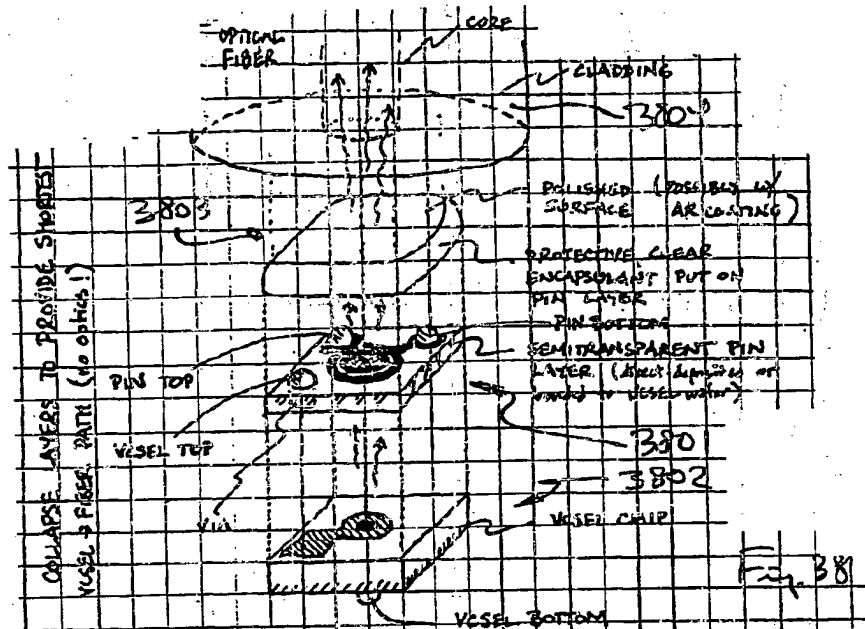 OPTICAL
FIBER
CORE
CLADDING
3804
POLISHED (POSSIBLY W/
SURFACE AR COATING)
3803
PROTECTIVE CLEAR
ENCAPSULANT PUT ON
PIN LAYER
PIN BOTTOM
SEMITRANSPARENT PIN
LAYER (direct deposited or
to VCSEL wafer)
PIN TOP
VCSEL TOP
VIA
3801
3802
VCSEL CHIP
VCSEL BOTTOM
COLLAPSE LAYERS TO PROVIDE SHORTEST
VCSEL → FIBER PATH (no optics!)
Fig. 38